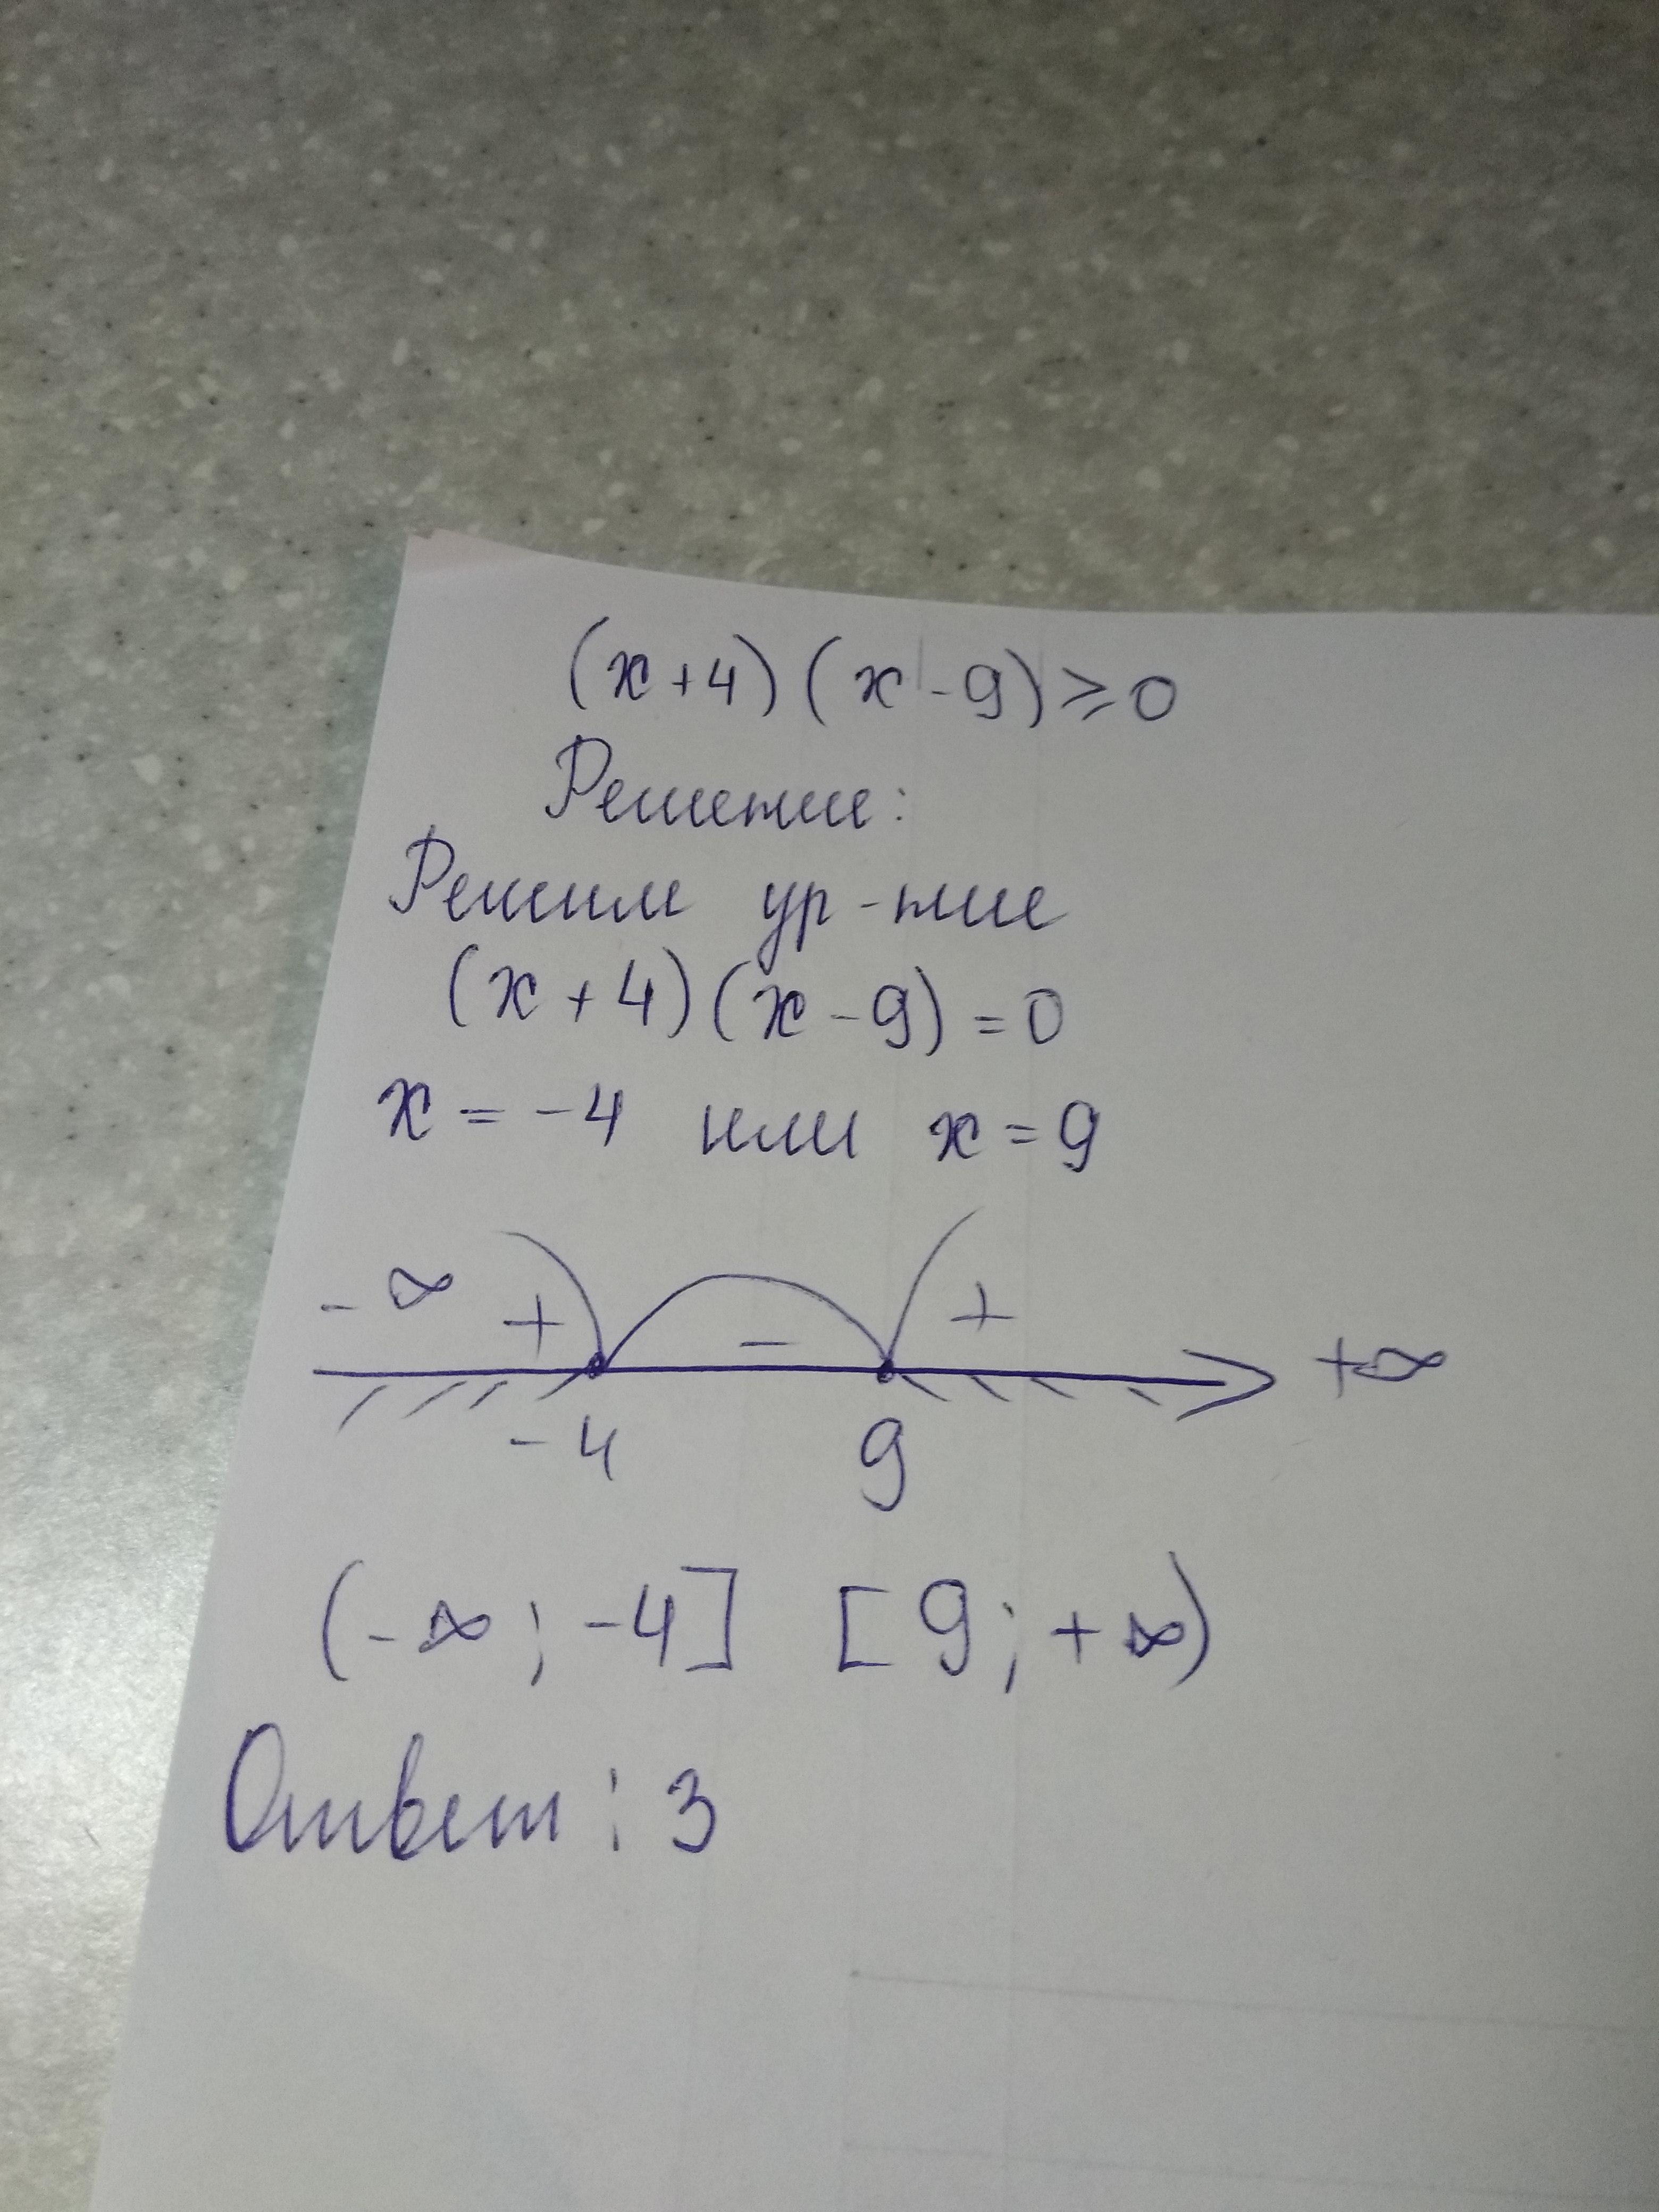 (x+4)(x-9)≥0
Решение:
Решим ур-ние
(x+4)(x-9)=0
x=-4 или x=9
-∞ + - + +∞
-4 9
(-∞;-4] [9;+∞)
Ответ: 3